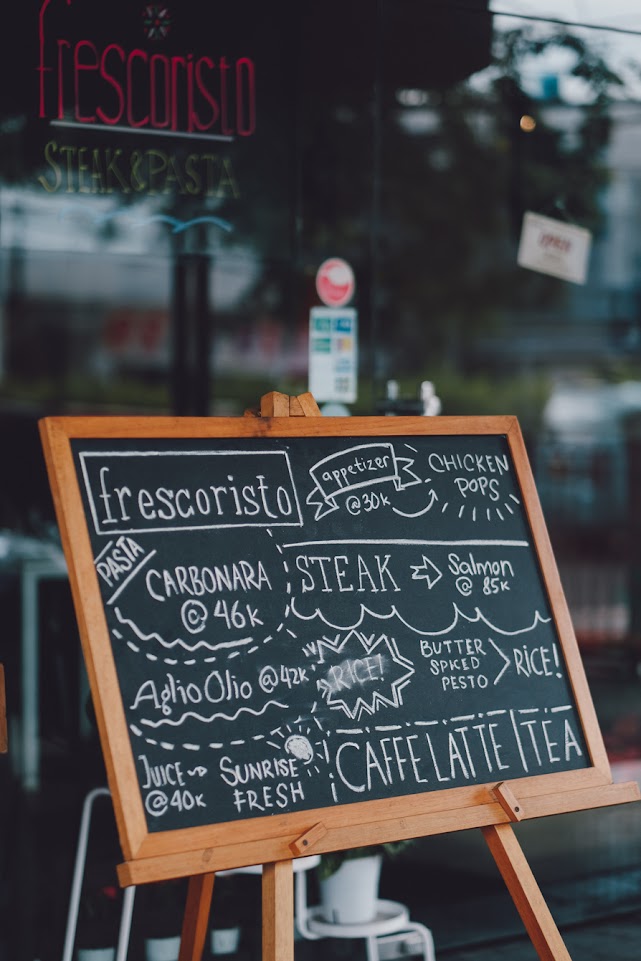 frescoristo
STEAK & PASTA
OPEN
frescoristo
appetizer
@30K
CHICKEN
POPS
PASTA
CARBONARA
@ 46K
STEAK
Salmon
@ 85K
Aglio Olio @42K
RICE!
BUTTER
SPICED
PESTO
RICE!
JUICE
@40K
SUNRISE
FRESH
CAFFE LATTE | TEA